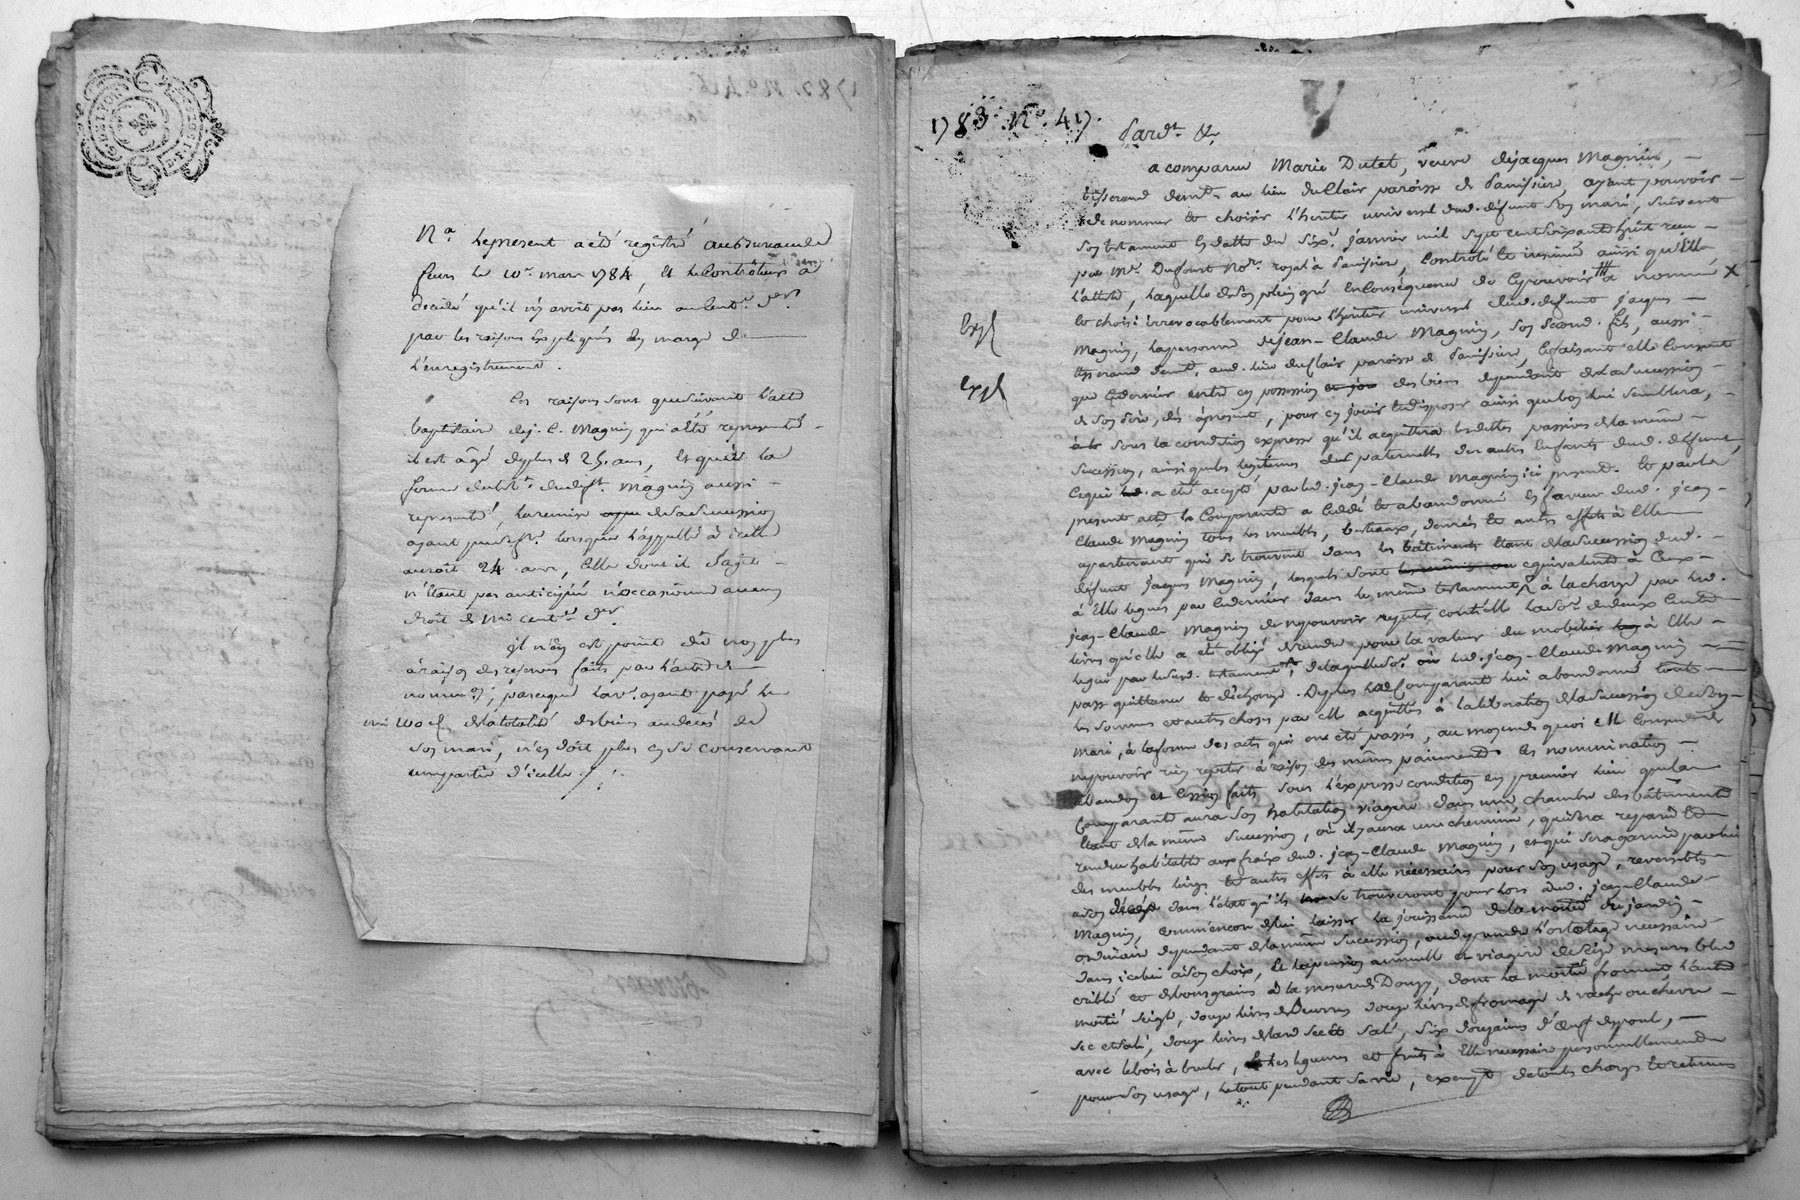 Na. le present a été registré au Bureau de
feurs le 10e. mars 1784, et le Controlleur a
décidé qu'il n'y avoit pas lieu au Cent.e dr.
par les raisons Expliquées En marge de
l'enregistrement.
Ces raisons sont que suivant l'acte
baptistaire de J. C. Magnin qui a été représenté
il est âgé de plus de 25. ans, Et que la
forme du test.t dud. déft. Magnin aussi
représenté, la remise de sa Succession
ayant
auroit 24 ans, Celle dont il s'agit
n'étant pas anticipée n'occasionne aucun
droit de mi cent.e dr.
il n'en est point dû non plus
à raison des reserves faites par l'acte de
nomin.on, parceque la ve. ayant payé le
mi 100e. de la totalité des biens au décès de
son mari, n'en doit plus en se conservant
une partie d'icelle.
1783. No. 417.
Pardt. &
a comparu Marie Dutel, veuve de Jacques Magnin,
tisserand demt. au lieu du Clair paroisse de Panissiere, ayant pouvoir
de nommer et choisir l'heritier universel dud. défunt son mari, suivant
son testament En datte du six janvier mil sept cent soixante huit recu
par Me. Dufour Nore. royal à Panissiere, Controllé et insinué ainsi qu'Elle
l'atteste, laquelle de son plein gré En Conséquence de Ce pouvoir a nommé
et choisi irrevocablement pour l'heritier universel dud. défunt Jacques
Magnin, la personne de Jean-Claude Magnin, son second fils, aussi
tisserand demt. aud. lieu du Clair paroisse de Panissiere, Ce faisant elle Consent
que Ce dernier entre en possession des biens dependants de la Succession
de son Pere, dès àprésent, pour en jouir et disposer ainsi que bon lui semblera,
sous la condition expresse qu'il acquittera les dettes passives de la même
Succession, ainsi que les legitimes paternelles des autres Enfants dud. défunt,
Ce qui a été accepté par led. Jean-Claude Magnin ici présent. Et par le
present acte la Comparante a Cédé et abandonné En faveur dud. Jean-
Claude Magnin tous les meubles, bestiaux, denrées et autres effets à Elle
apartenant qui se trouvent dans les bâtiments Etant de la succession dud.
défunt Jacques Magnin, lesquels sont equivalents à Ceux
à Elle legués par Ce dernier dans le même testament, à la charge par led.
Jean-Claude Magnin de ne pouvoir repeter contr'elle la some. de deux Cents
livres qu'elle a été obligé de rendre pour la valeur du mobilier à Elle
legué par le sud. testament, de laquelle some. led. Jean-Claude Magnin
passe quittance et décharge. De plus la Comparante lui abandonne toutes
les sommes et autres choses par elle acquittées à la liberation de la succession de son
Mari, à la forme des actes qui ont été passés, au moyen de quoi elle Consent de
ne pouvoir rien repeter à raison des mêmes paiements. Ces nomination
abandon et Cession faits sous l'expresse condition En premier lieu que la
Comparante aura son habitation viagere dans une chambre des bâtiments
Etant de la même Succession, où il y aura une cheminée, qui sera reparée Et
rendue habitable aux fraix dud. Jean-Claude Magnin, et qui sera garnie par lui
des meubles linges et autres effets à elle nécessaires pour son usage, reversibles
à son décès dans l'état qu'ils se trouveront pour lors aud. Jean-Claude
Magnin, comme encore de lui laisser la jouissance de la moitié du jardin
ordinaire dependant de la même Succession, l'ortolage nécessaire
dans icelui à son choix, Et la pension annuelle et viagere de seize mesures bled
criblé et de bons grains à la mesure de Donzy, dont la moitié froment, l'autre
moitié seigle, douze livres de Beurre, douze livres de fromage de vache ou chevre
sec et salé, douze livres de lard sec et salé, six douzaines d'œufs de poule,
avec le bois à bruler, Et les legumes et fruits à Elle nécessaires personnellement
pour son usage, le tout pendant sa vie, exempt de toutes charges Et retenues